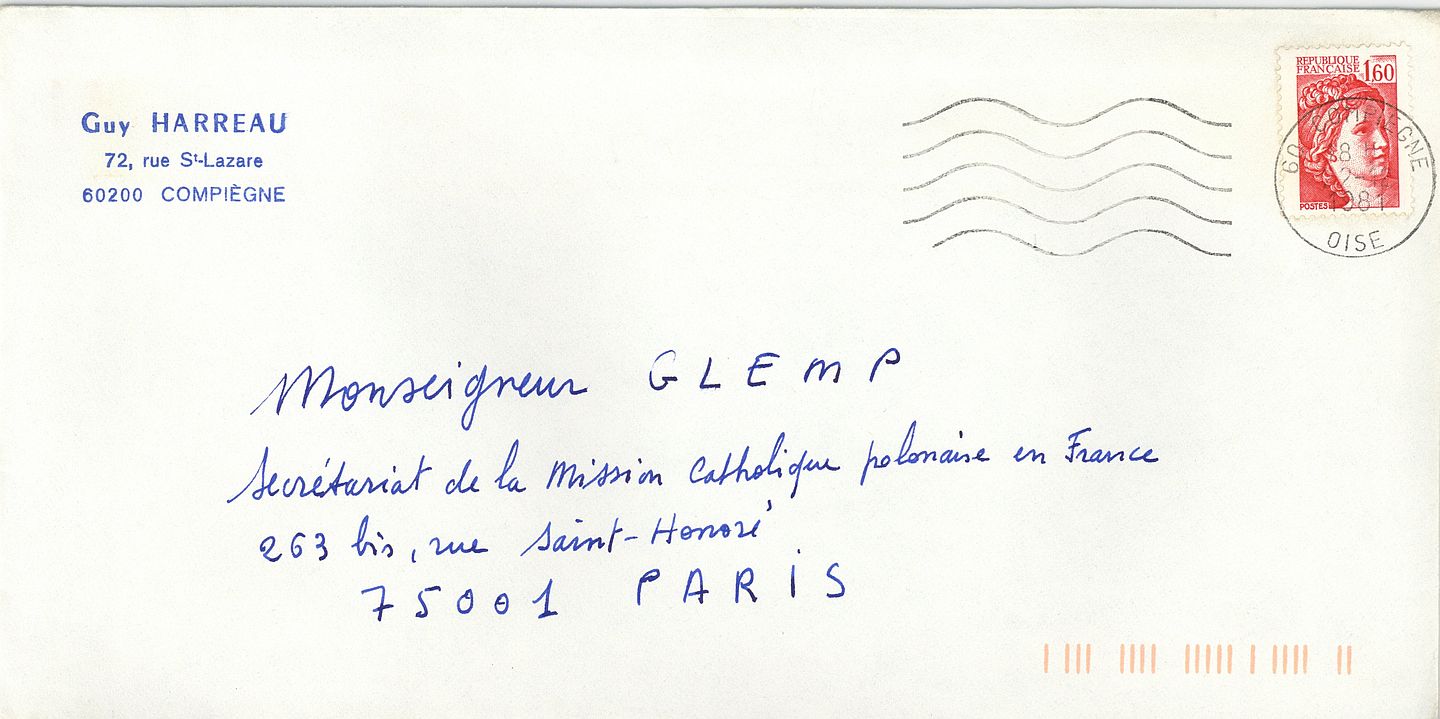 Guy HARREAU
72, rue St-Lazare
60200 COMPIÈGNE
REPUBLIQUE
FRANÇAISE 1,60
POSTES
60 COMPIEGNE
1981
OISE
Monseigneur GLEMP
Secrétariat de la Mission Catholique polonaise en France
263 bis, rue Saint-Honoré
75001 PARIS